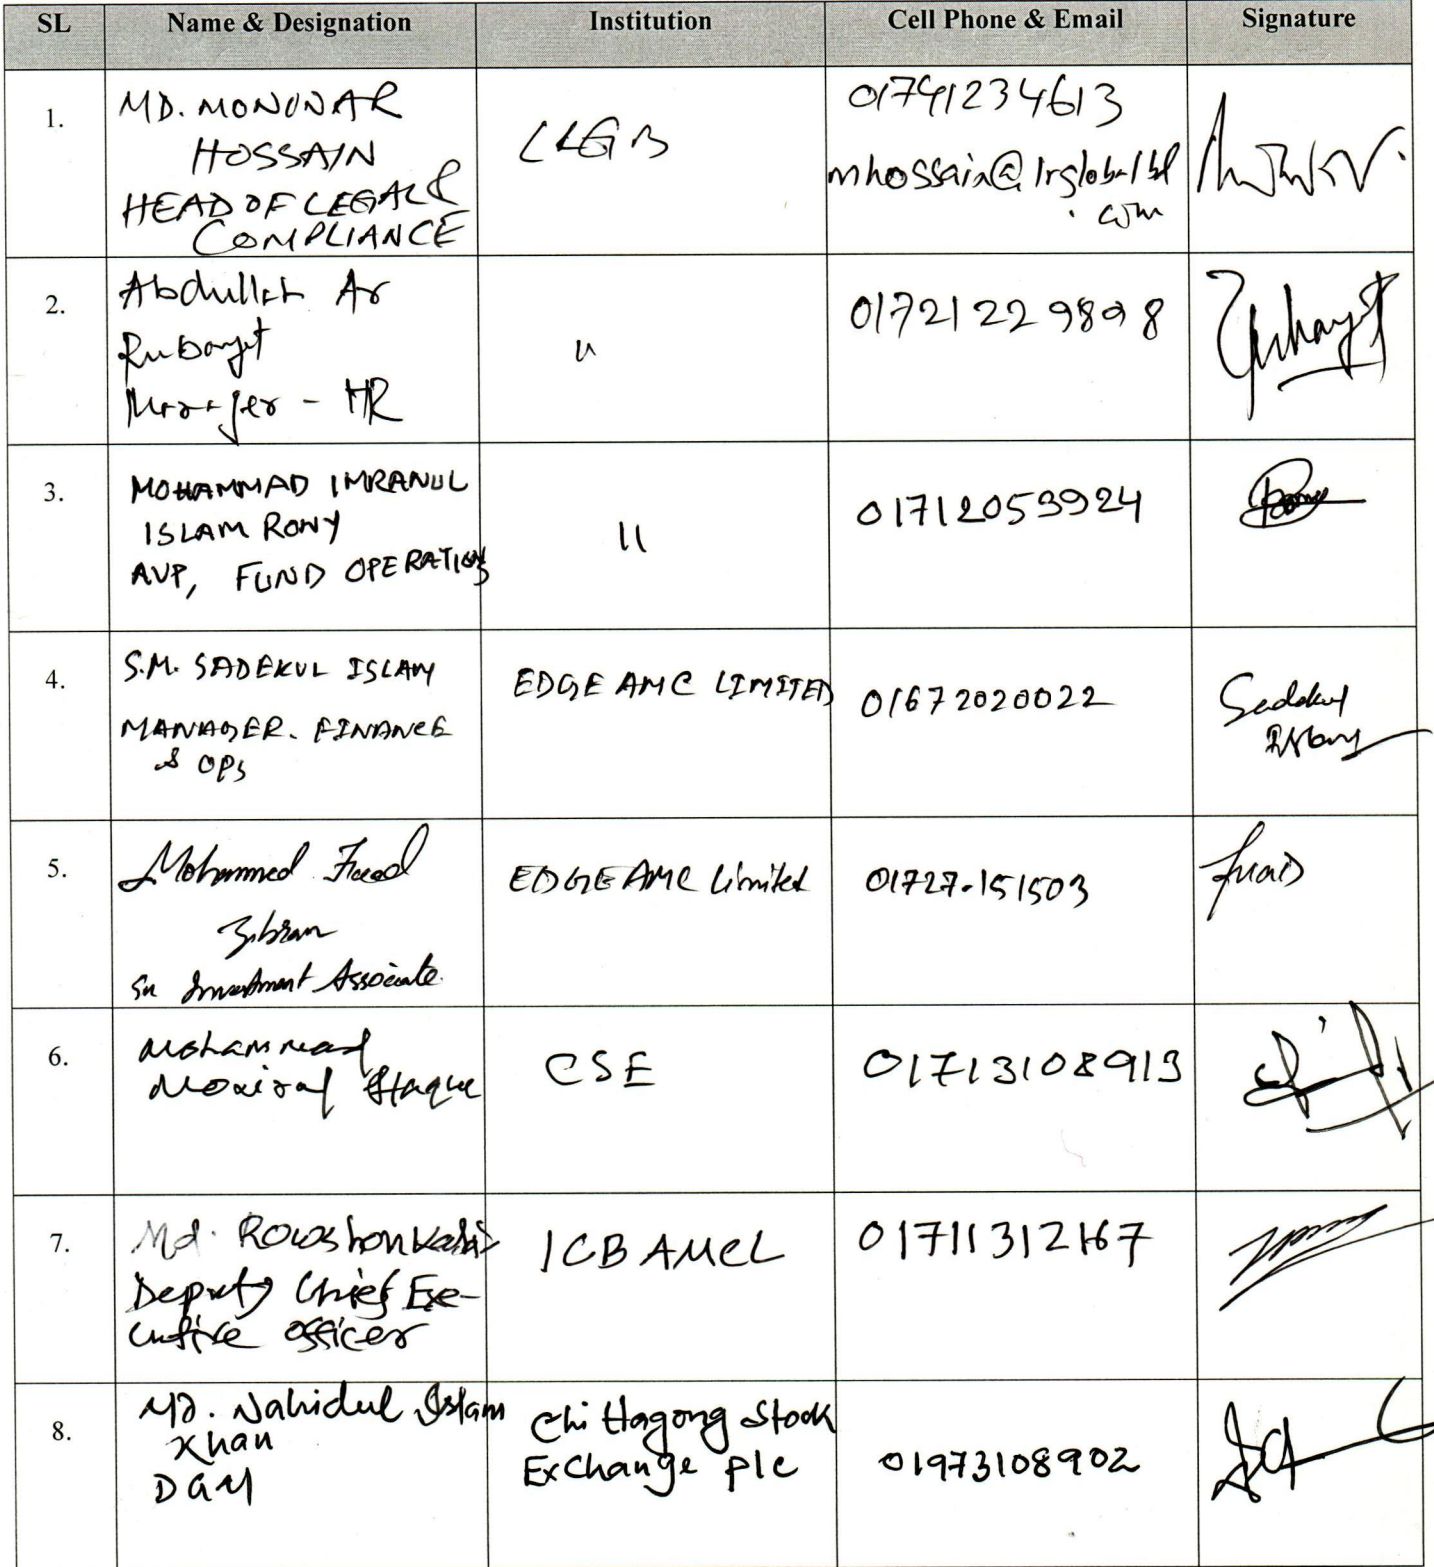 SL Name & Designation Institution Cell Phone & Email Signature
1.
MD. MONUNAR
HOSSAIN
HEAD OF LEGAL &
COMPLIANCE
01741234613
mhossain@lrglobalbd
.com
2.
Abdullah Ar
Rubayet
Manager - HR
"
01721229898
3.
MOHAMMAD IMRANUL
ISLAM RONY
AVP, FUND OPERATIONS
"
01712053924
4.
S.M. SADEKUL ISLAM
MANAGER. FINANCE
& OPS
EDGE AMC LIMITED
01672020022
Sadekul
Islam
5.
Mohammed Fuad
Zibran
Sr Investment Associate
EDGE AMC Limited
01727-151503
Fuad
6.
Mohammad
Monirul Haque
CSE
01713108913
7.
Md. Rowshon
Deputy Chief Exe-
cutive officer
ICB AMCL
01711312167
8.
Md. Nahidul Islam
Khan
DGM
Chittagong Stock
Exchange plc
01973108902